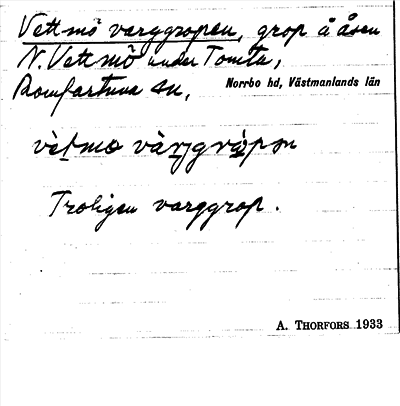 Vettmö varggropen, grop å åsen
N. Vettmö under Tomta,
Romfartuna sn, Norrbo hd, Västmanlands län
Troligen varggrop.
A. THORFORS 1933